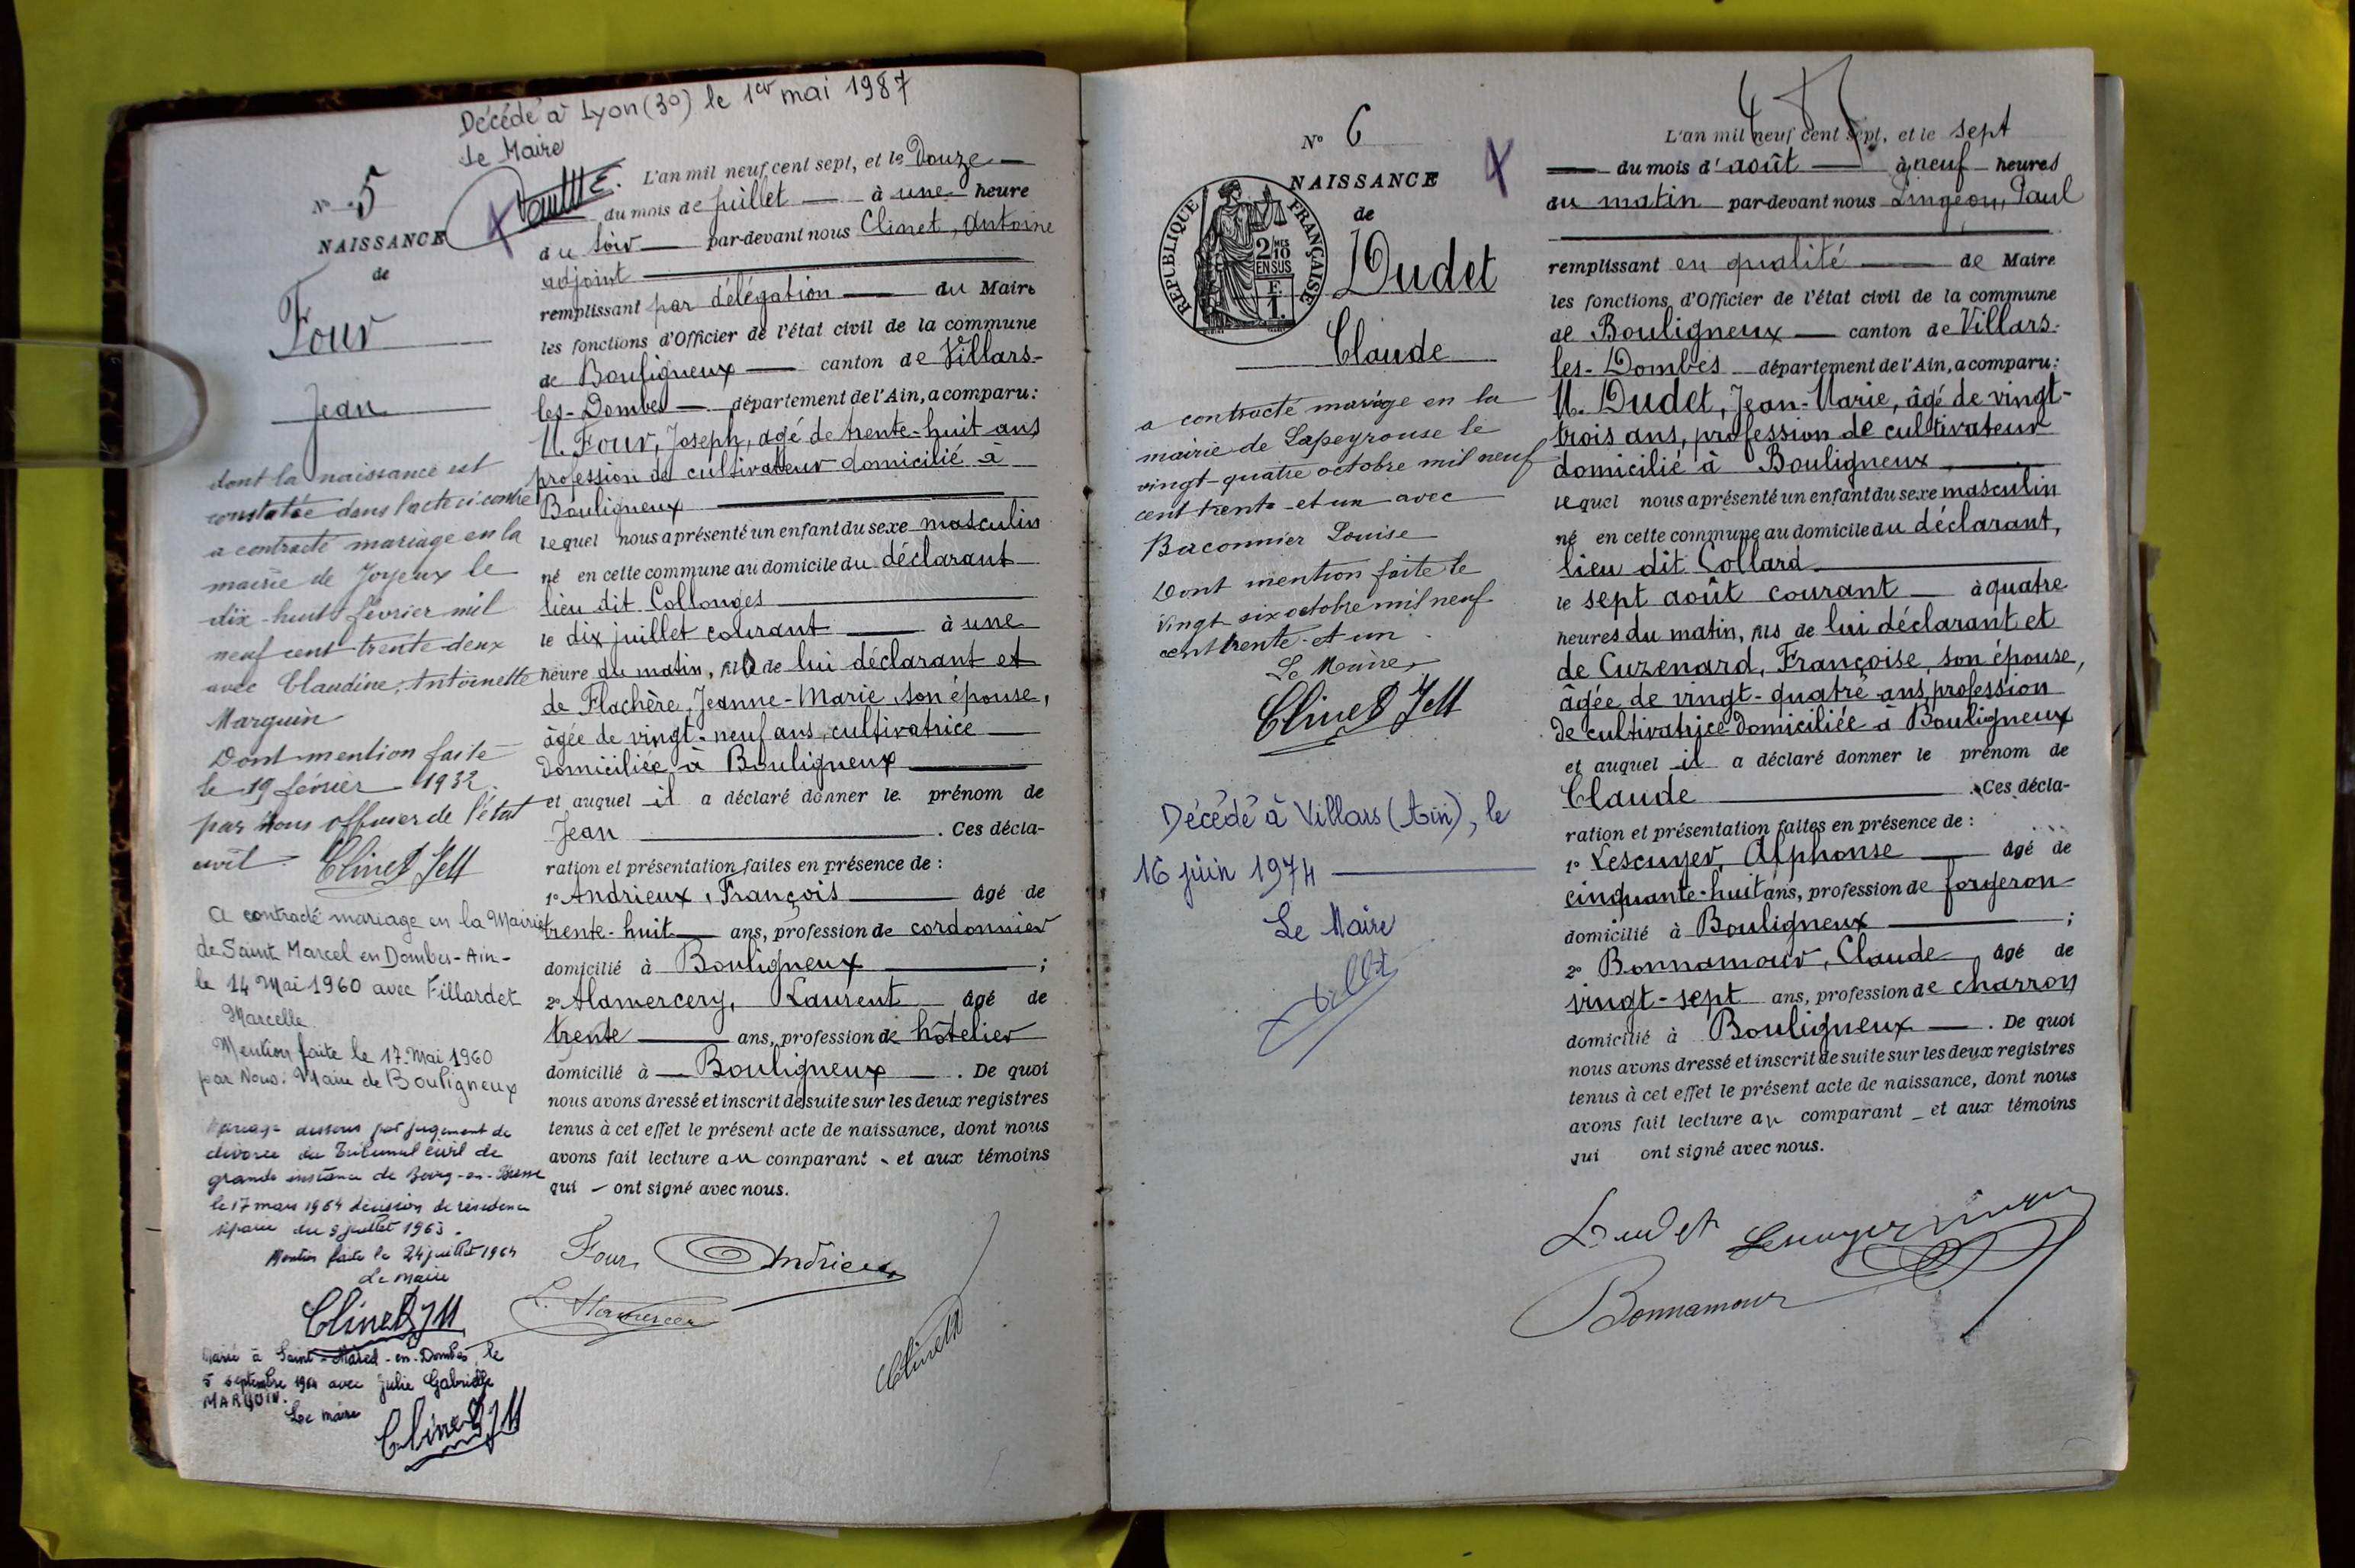 Décédé à Lyon (3e) le 1er mai 1987
Le Maire
N° 5
NAISSANCE
de
Four
Jean
dont la naissance est
constatée dans l'acte ci contre
a contracté mariage en la
mairie de Joyeux le
dix-huit février mil
neuf cent trente deux
avec Claudine, Antoinette
Marguin
Dont mention faite
le 19 février 1932.
par Nous officier de l'état
civil Clinet JM
A contracté mariage en la Mairie
de Saint Marcel en Dombes - Ain -
le 14 Mai 1960 avec Fillardet
Marcelle
Mention faite le 17 Mai 1960
par Nous. Maire de Bouligneux
Mariage dissous par jugement de
divorce du Tribunal civil de
grande instance de Bourg-en-Bresse
le 17 mars 1964 décision de résidence
séparée du 9 juillet 1963.
Mention faite le 24 juillet 1964
Le Maire
Clinet JM
Marié à Saint-Marcel-en-Dombes, le
5 septembre 1964 avec Julie Gabrielle
MARGUIN.
Le maire
Clinet JM
L'an mil neuf cent sept, et le Douze
du mois de juillet à une heure
du soir par-devant nous Clinet, Antoine
adjoint
remplissant par délégation du Maire
les fonctions d'Officier de l'état civil de la commune
de Bouligneux canton de Villars-
les-Dombes département de l'Ain, a comparu:
M. Four, Joseph, âgé de trente-huit ans
profession de cultivateur domicilié à
Bouligneux
lequel nous a présenté un enfant du sexe masculin
né en cette commune au domicile du déclarant
lieu dit Collonges
le dix juillet courant à une
heure du matin, fils de lui déclarant et
de Flachère, Jeanne-Marie, son épouse,
âgée de vingt-neuf ans, cultivatrice
domiciliée à Bouligneux
et auquel il a déclaré donner le prénom de
Jean . Ces décla-
ration et présentation faites en présence de :
1° Andrieux, François âgé de
trente-huit ans, profession de cordonnier
domicilié à Bouligneux ;
2° Alamercery, Laurent âgé de
trente ans, profession de hôtelier
domicilié à Bouligneux . De quoi
nous avons dressé et inscrit de suite sur les deux registres
tenus à cet effet le présent acte de naissance, dont nous
avons fait lecture au comparant et aux témoins
qui ont signé avec nous.
Four Andrieux
L. Alamercery
Clinet
N° 6
NAISSANCE
de
RÉPUBLIQUE FRANÇAISE
2/10 MES
EN SUS
F.
1.
Dudet
Claude
a contracté mariage en la
mairie de Lapeyrouse le
vingt-quatre octobre mil neuf
cent trente-et-un avec
Baconnier Louise
Dont mention faite le
vingt six octobre mil neuf
cent trente-et-un.
Le Maire,
Clinet JM
Décédé à Villars (Ain), le
16 juin 1974
Le Maire
L'an mil neuf cent sept, et le sept
du mois d'août à neuf heures
du matin par-devant nous Lingeon, Paul
remplissant en qualité de Maire
les fonctions d'Officier de l'état civil de la commune
de Bouligneux canton de Villars-
les-Dombes département de l'Ain, a comparu:
M. Dudet, Jean-Marie, âgé de vingt-
trois ans, profession de cultivateur
domicilié à Bouligneux,
lequel nous a présenté un enfant du sexe masculin
né en cette commune au domicile du déclarant,
lieu dit Collard
le sept août courant à quatre
heures du matin, fils de lui déclarant et
de Cuzenard, Françoise, son épouse,
âgée de vingt-quatre ans, profession
de cultivatrice domiciliée à Bouligneux
et auquel il a déclaré donner le prénom de
Claude . Ces décla-
ration et présentation faites en présence de :
1° Lescuyer, Alphonse âgé de
cinquante-huit ans, profession de forgeron
domicilié à Bouligneux ;
2° Bonnamour, Claude âgé de
vingt-sept ans, profession de charron
domicilié à Bouligneux . De quoi
nous avons dressé et inscrit de suite sur les deux registres
tenus à cet effet le présent acte de naissance, dont nous
avons fait lecture au comparant et aux témoins
qui ont signé avec nous.
Dudet Lescuyer
Bonnamour